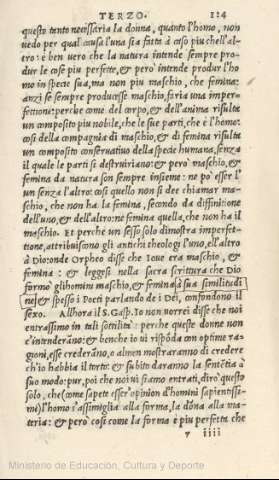 TERZO. 124
questo tanto necessaria la donna, quanto l'homo, non
uedo per qual causa l'una sia fatta à caso piu che l'al-
tro: è ben uero che la natura intende sempre pro-
dur le cose piu perfette, & però intende produr l'ho
mo in specie sua, ma non piu maschio, che femina:
anzi se sempre producesse maschio, faria una imper-
fettione: perche come del corpo, & dell'anima risulta
un composito piu nobile, che le sue parti, che è l'home:
cosi della compagnia di maschio, & di femina risulta
un composito conseruatiuo della specie humana, senza
il quale le parti si destruiriano: & però maschio, &
femina da natura son sempre insieme: ne po' esser l'
un senza l'altro: cosi quello non si dee chiamar ma-
schio, che non ha la femina, secondo la diffinitione
dell'uno, & dell'altro: ne femina quella, che non ha il
maschio. Et perche un sesso solo dimostra imperfet-
tione, attribuiscono gli antichi theologi l'uno, e l'altro
à Dio: onde Orpheo disse che Ioue era maschio, &
femina: & leggesi nella sacra scrittura che Dio
formò gli homini maschio, & femina à sua similitudi
ne, & spesso i Poeti parlando de i Dei, confondono il
sexo. Allhora il S. Gasp. Io non uorrei disse che noi
entrassimo in tali sottilità: perche queste donne non
c'intenderano: & benche io ui rispōda con optime ra-
gioni, esse crederano, o almen mostraranno di credere
ch'io habbia il torto: & subito daranno la sentētia à
suo modo: pur, poi che noi ui siamo entrati, dirò questo
solo, che (come sapete esser opinion d'homini sapientissi-
mi) l'homo s'assimiglia alla forma, la dōna alla ma-
teria: & però cosi come la forma è piu perfetta che
iiii
Ministerio de Educación, Cultura y Deporte